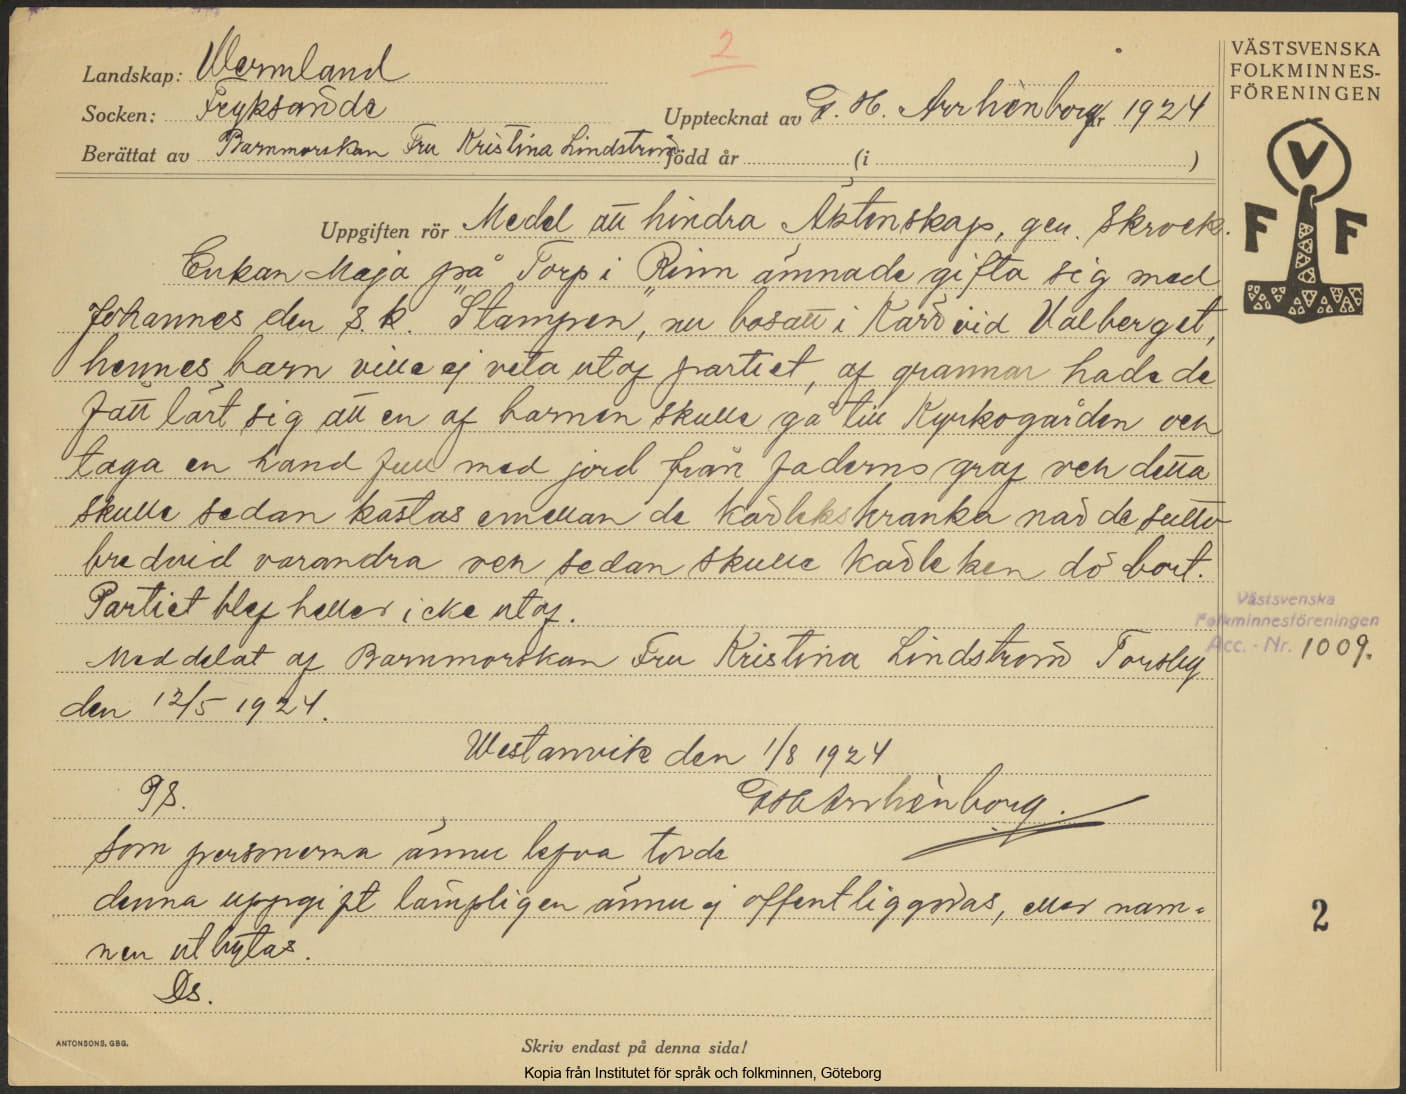 2
Landskap: Wermland
Socken: Fryksände
Upptecknat av G. H. Arrhènborg år 1924
Berättat av Barnmorskan Fru Kristina Lindström född år (i )
VÄSTSVENSKA
FOLKMINNES-
FÖRENINGEN
V
F F
Uppgiften rör Medel att hindra Äktenskap, gen. skrock.
Enkan Maja på Torp i Rinn ämnade gifta sig med
Johannes den s.k. "Stampen", nu bosatt i Kärr vid Valberget,
hennes barn ville ej veta utaf partiet, af grannar hade de
fått lärt sig att en af barnen skulle gå till Kyrkogården och
taga en hand full med jord från faderns graf och detta
skulle sedan kastas emellan de kärlekskranka när de sutto
bredvid varandra och sedan skulle kärleken dö bort.
Partiet blef heller icke utaf.
Meddelat af Barnmorskan Fru Kristina Lindström Torsby
den 12/5 1924.
Västsvenska
Folkminnesföreningen
Acc. - Nr. 1009.
Westanvik den 1/8 1924
GHArrhènborg.
PS.
Som personerna ännu lefva torde
denna uppgift lämpligen ännu ej offentliggöras, eller nam-
nen utbytas.
Ds.
2
ANTONSONS, GBG.
Skriv endast på denna sida!
Kopia från Institutet för språk och folkminnen, Göteborg